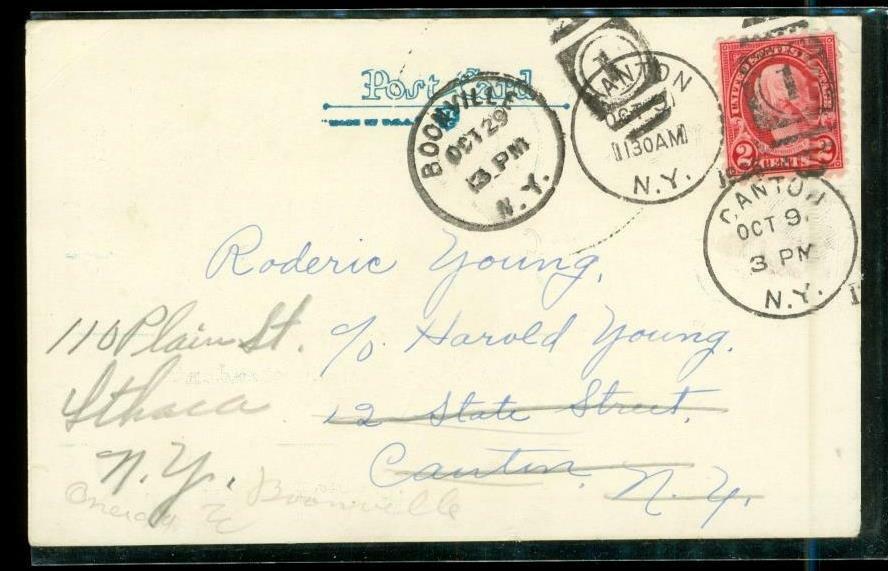 Post Card
MADE IN U.S.A.
BOONVILLE
OCT 29
3 PM
N.Y.
CANTON
OCT 9
1130AM
N.Y.
1
UNITED STATES POSTAGE
2 CENTS 2
CANTON
OCT 9
3 PM
N.Y.
1
Roderic Young,
c/o Harold Young.
12 State Street,
Canton, N.Y.
110 Plain St.
Ithaca
N.Y.
Boonville
Oneida